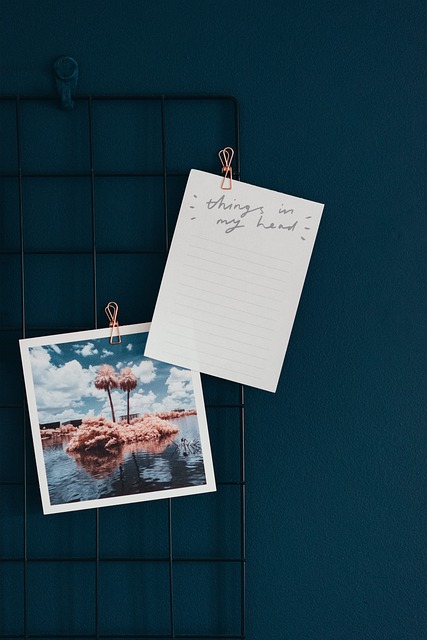 things in
my head